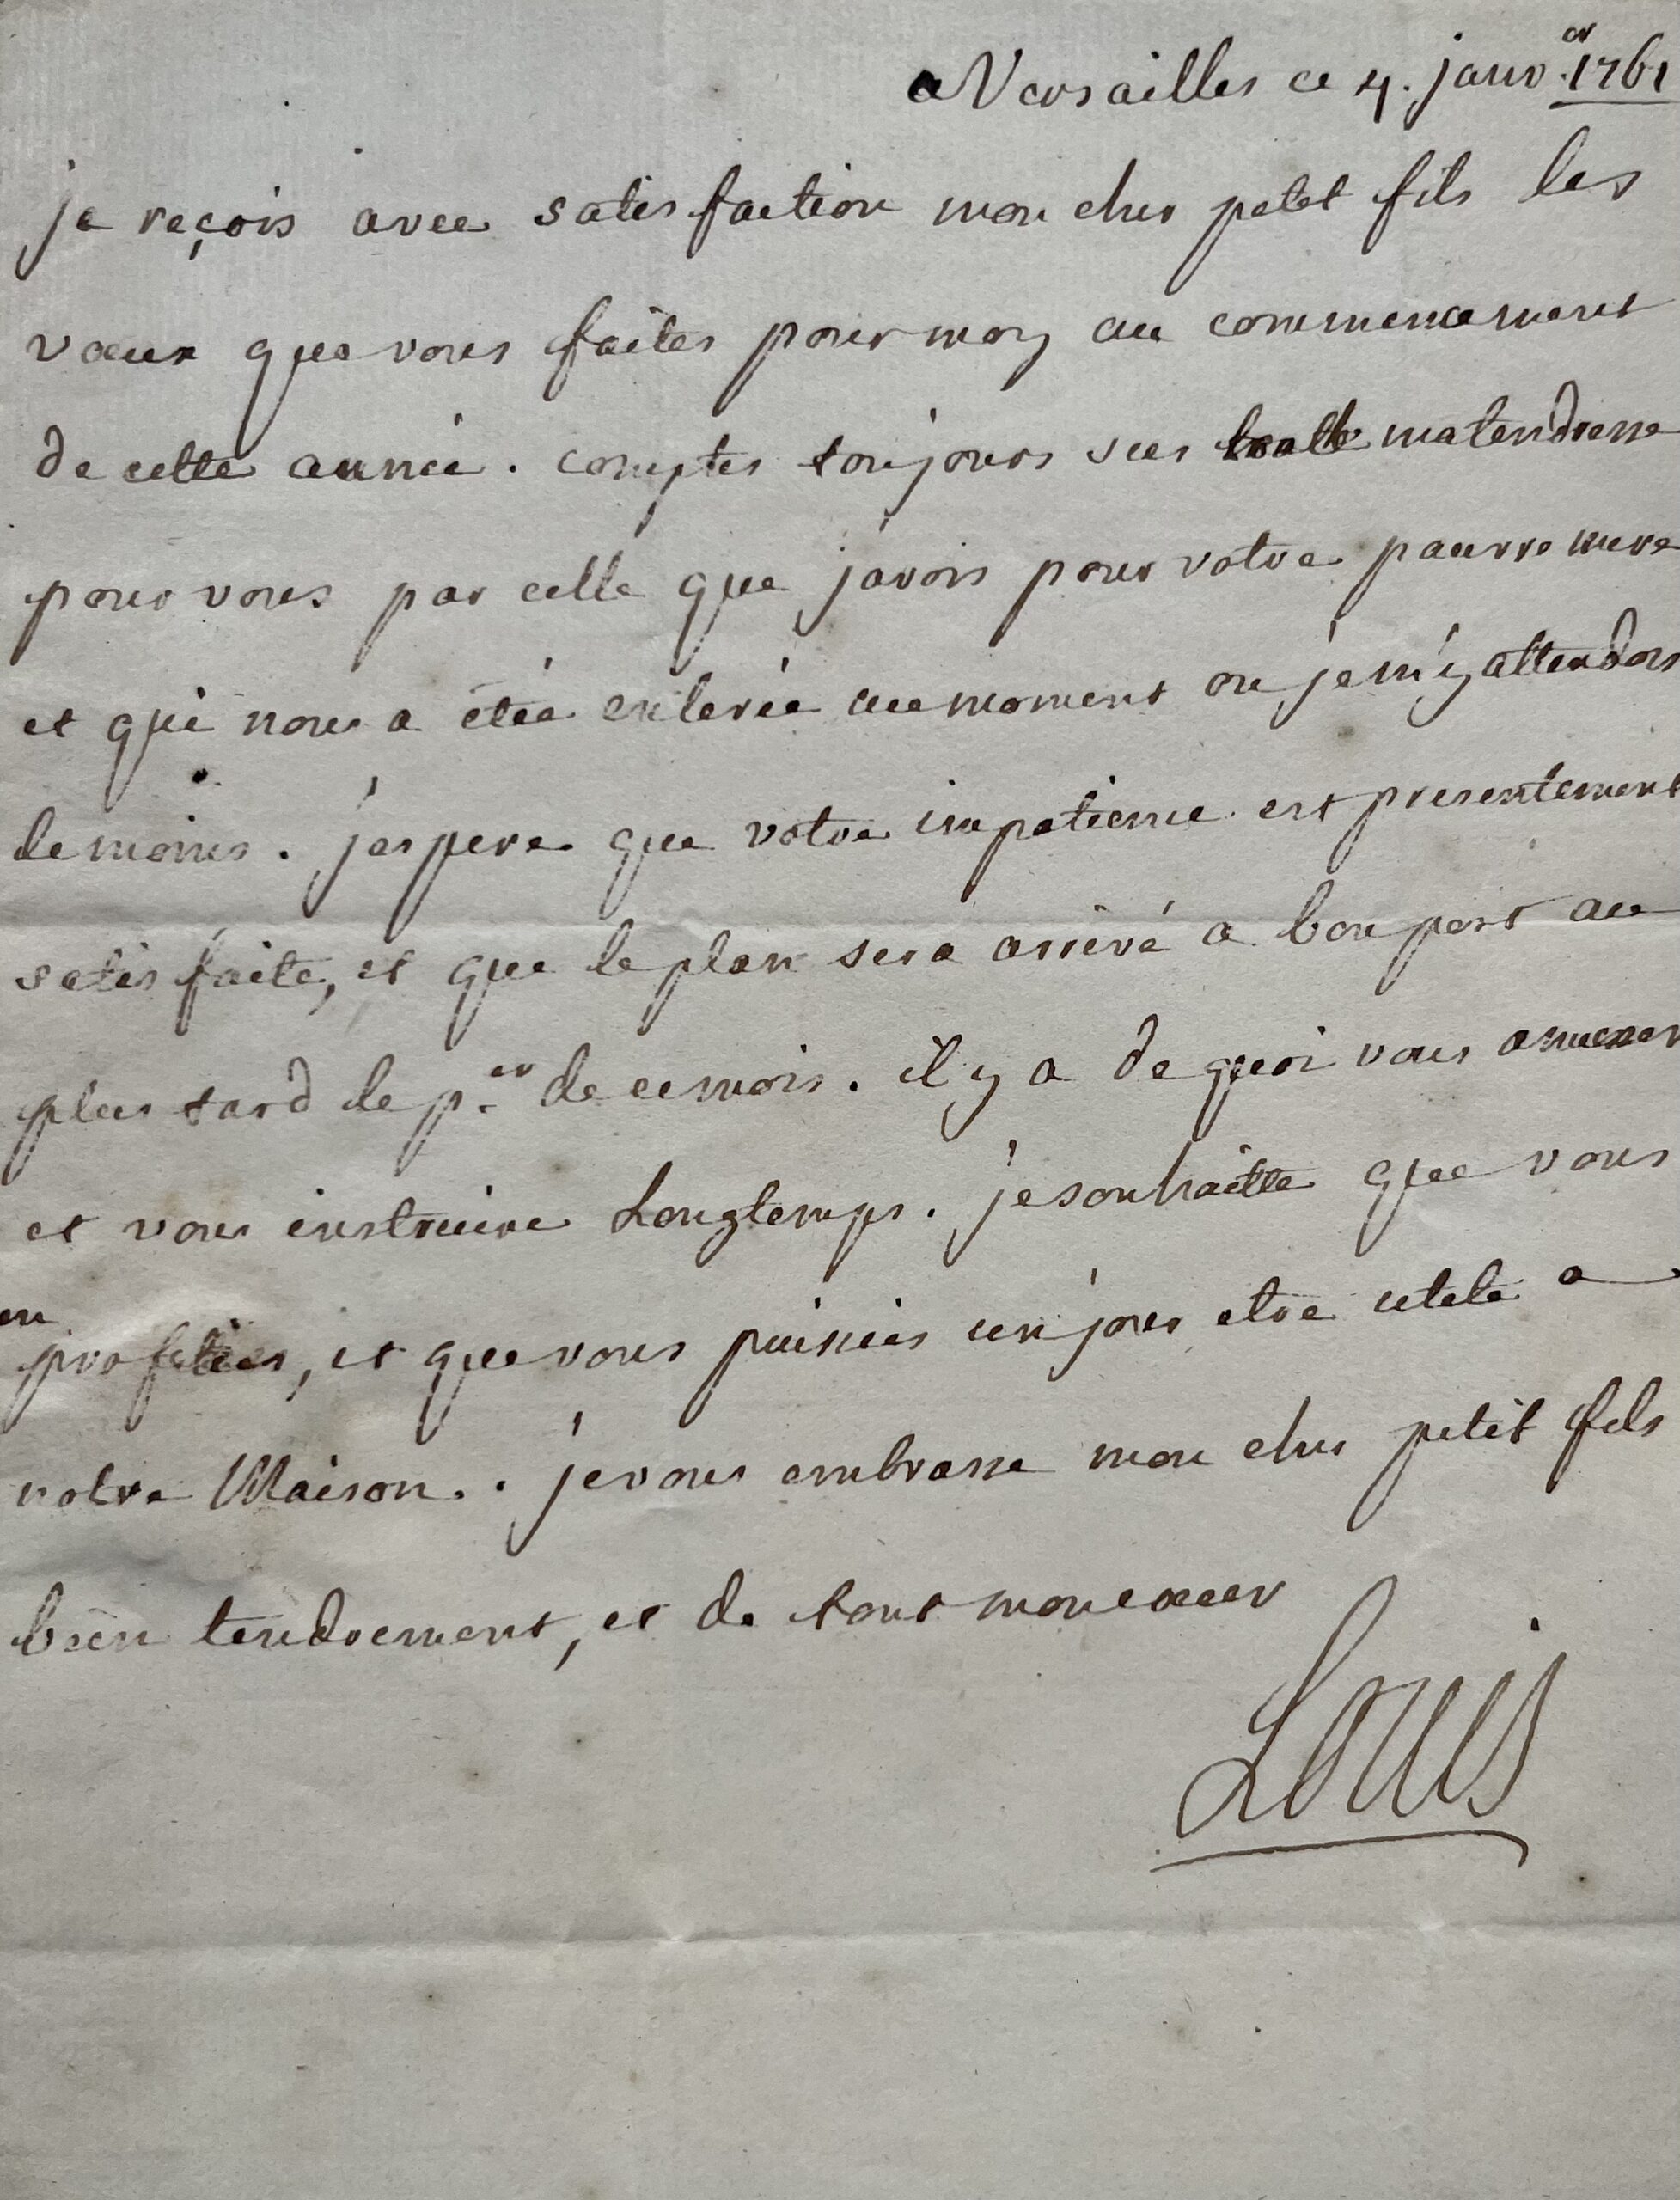 a Versailles ce 4. janv.er 1761
je reçois avec satisfaction mon cher petit fils les
vœux que vous faites pour moy au commencement
de cette année. comptes toujours sur toutte ma tendresse
pour vous par celle que j'avois pour votre pauvre mere
et qui nous a étée enlevée au moment ou je m'y attendois
le moins. j'espere que votre impatience est presentement
satisfaite, et que le plan sera arrivé a bon port au
plus tard le p.er de ce mois. il y a de quoi vous amuser
et vous instruire Longtemps. je souhaitte que vous
en profities, et que vous puissies un jour etre utile a
notre Maison. je vous embrasse mon cher petit fils
bien tendrement, et de tout mon cœur
Louis